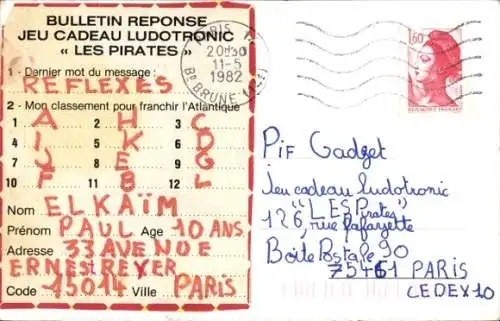 BULLETIN REPONSE
JEU CADEAU LUDOTRONIC
« LES PIRATES »
1 - Dernier mot du message :
REFLEXES
2 - Mon classement pour franchir l'Atlantique
1 A 2 H 3 C
4 I 5 K 6 D
7 J 8 E 9 G
10 F 11 B 12 L
Nom ELKAÏM
Prénom PAUL Age 10 ANS
Adresse 33 AVENUE
ERNEST REYER
Code 75014 Ville PARIS
PARIS
20H30
11-5
1982
Bd BRUNE (14e)
1,60
REPUBLIQUE FRANÇAISE
Pif Gadget
Jeu cadeau ludotronic
"LES Pirates"
126, rue lafayette
Boite Postale 90
75461 PARIS
CEDEX 10